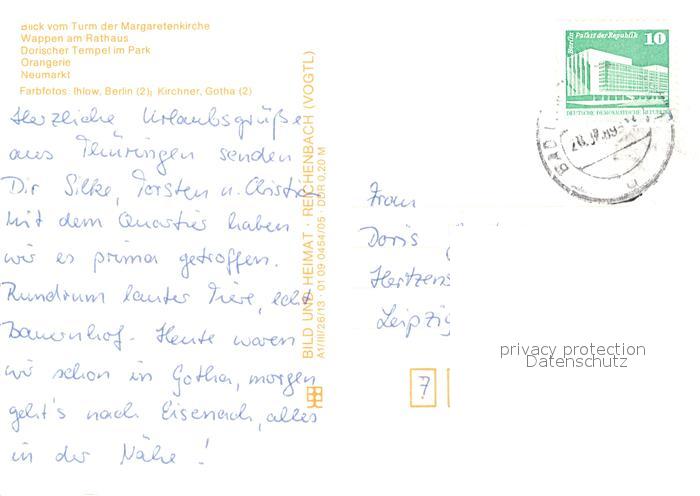 Blick vom Turm der Margaretenkirche
Wappen am Rathaus
Dorischer Tempel im Park
Orangerie
Neumarkt
Farbfotos: Ihlow, Berlin (2); Kirchner, Gotha (2)
Herzliche Urlaubsgrüße
aus Thüringen senden
Dir Silke, Torsten u. Christian
Mit dem Quartier haben
wir es prima getroffen.
Rundrum lauter Tiere, echt
Bauernhof. Heute waren
wir schon in Gotha, morgen
geht's nach Eisenach, alles
in der Nähe!
BILD UND HEIMAT · REICHENBACH (VOGTL)
A1/III/26/13 01 09 0454/05 DDR 0,20 M
Berlin Palast der Republik
10
DEUTSCHE DEMOKRATISCHE REPUBLIK
Frau
Doris
Hertzens
Leipzig
7
privacy protection
Datenschutz